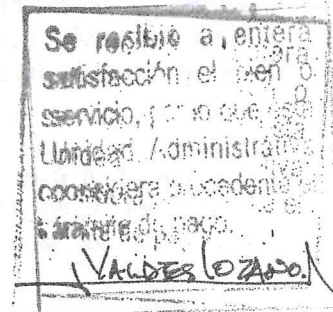 Se recibió a entera
satisfacción el bien o
servicio, por lo que
Unidad Administrativa
considera procedente
trámite de pago.
VALDES LOZANO.